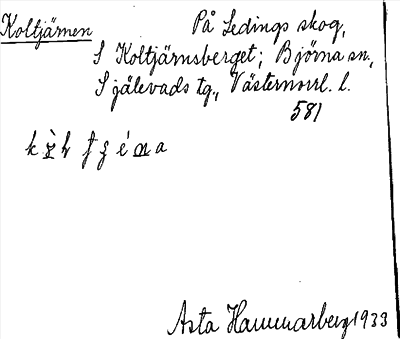 Koltjärnen På Ledings skog,
S Koltjärnsberget; Björna sn.,
Själevads tg., Västernorrl. l.
581
Asta Hammarberg 1933